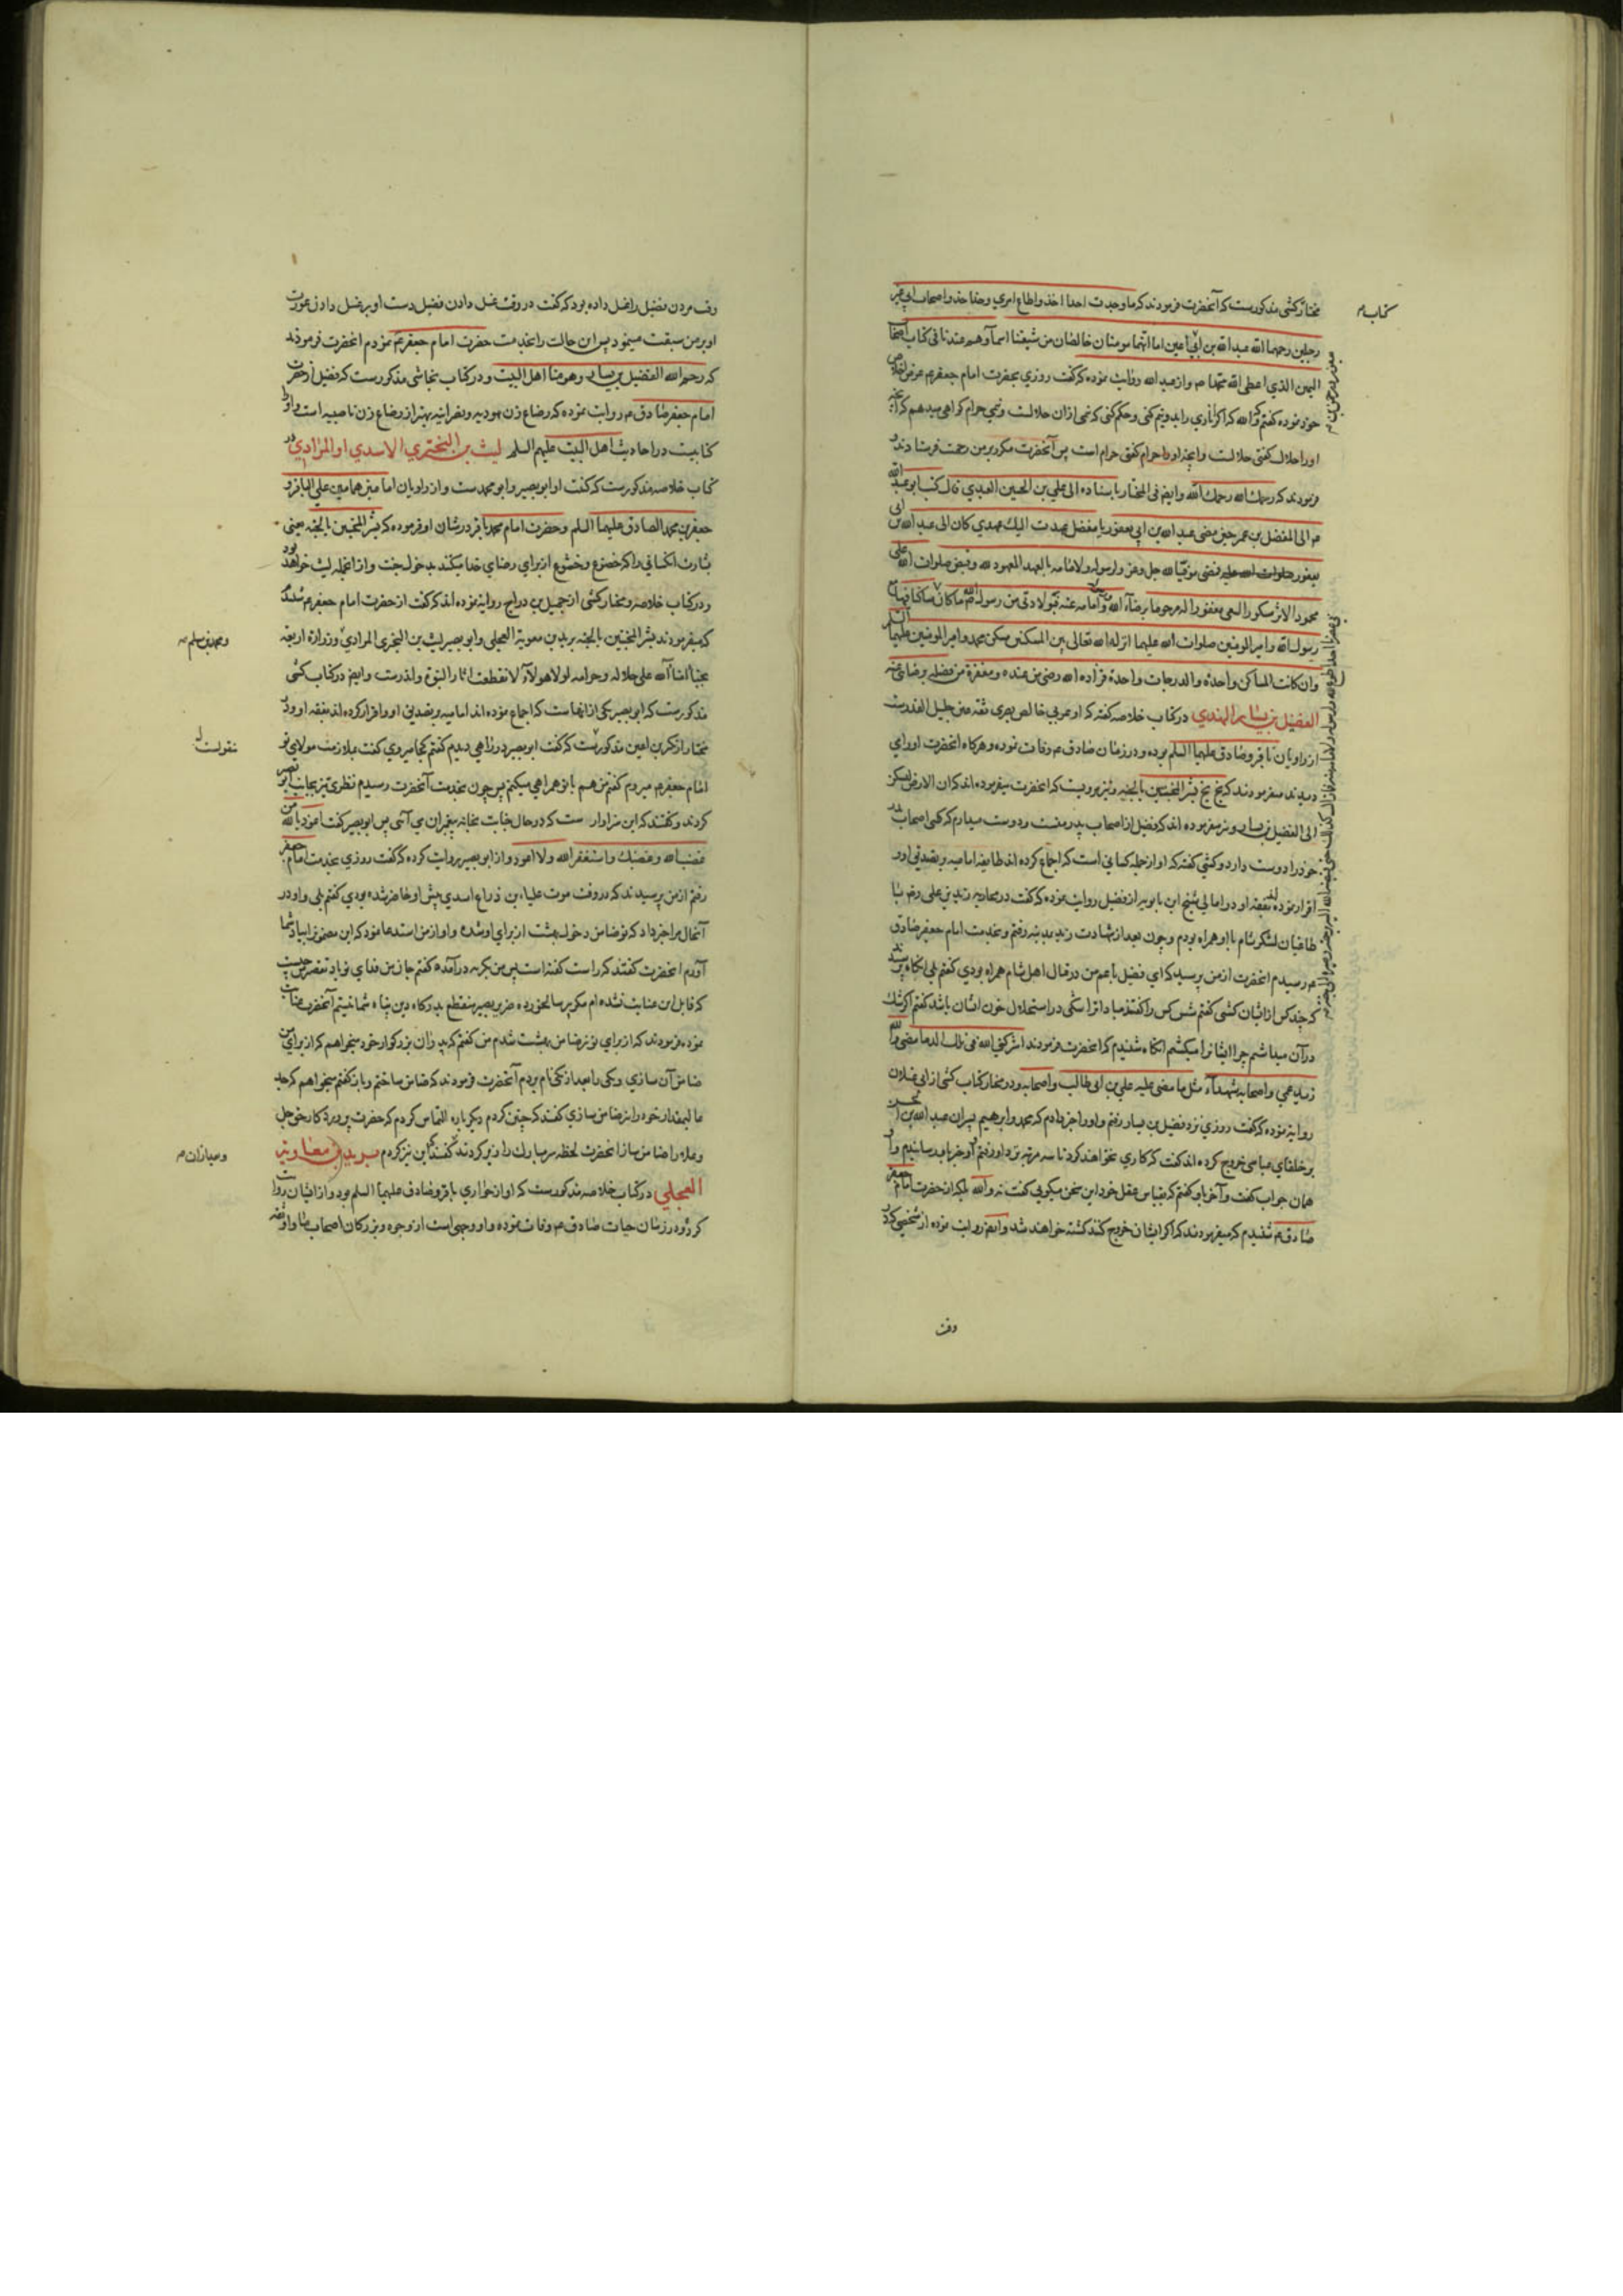 مختار کشی مذکورست که آنحضرت فرمودند که ما وجدت احدا اخذ واطاع امری وحذا حذو اصحاب ابی غیر
رجلین رحمهما الله عبد الله بن ابی امین اما انهما مومنان خالصان من شیعتنا اسمآوهم عندنا فی کتاب اصحاب
الیمین الذی اعطی الله محمدا م واز عبد الله روایت نموده که گفت روزی بحضرت امام جعفر م عرض
خود نموده گفتم والله که اگر اناری را بدو نیم کنی وحکم کنی که نیمی ازان حلالست ونیمی حرام گواهی میدهم که آنچه
اورا حلال گفتی حلالست وآنچه اورا حرام گفتی حرام است پس آنحضرت مکرر بر من رحمت فرستادند و
فرمودند که رحمك الله رحمك الله وایضا فی المختار باسناده الی علی بن الحسین العبدی قال کتب ابو عبد الله
م الی المفضل بن عمر حین مضی عبد الله بن ابی یعفور یا مفضل عهدت الیك عهدی کان الی عبد الله بن ابی
یعفور صلوات الله علیه فمضی موفیا لله جل وعز ولرسوله ولامامه بالعهد المعهود لله وقبض صلوات الله علی
محمود الاثر مشکور السعی مغفورا له مرحوما برضاء الله وامامه عنه فبولادتی من رسول الله ما کان
رسول الله وامیر المومنین صلوات الله علیهما انزله الله تعالی بین المسکنین مسکن محمد وامیر المومنین علیهما السلم
وان کانت المساکن واحدة والدرجات واحدة فزاده الله رضی من عنده ومغفرة من فضله برضای عنه
الفضیل بن یسار النهدی در کتاب خلاصه گفته که او عربی خالص بصری ثقه عین جلیل القدرست
از راویان باقر وصادق علیهما السلم بوده ودر زمان صادق م وفات نموده وهرگاه آنحضرت اورا می
دیدند میفرمودند که بخ بخ بشر المخبتین بالجنة ونیز مرویست که آنحضرت میفرموده اند که ان الارض لتسکن
الی الفضیل بن یسار ونیز میفرموده اند که فضیل از اصحاب پدر منست ودوست میدارم که کسی اصحاب پدر
خود را دوست دارد وکشی گفته که او از جمله کسانی است که اجماع کرده اند طایفه امامیه بر تصدیق او و
اقرار نموده بفقه او ودر امالی شیخ ابن بابویه از فضیل روایت نموده که گفت در محاربه زید بن علی رض با
طاغیان لشکر شام با او همراه بودم وچون بعد از شهادت زید بمدینه رفتم وبخدمت امام جعفر صادق
م رسیدم آنحضرت از من پرسید که ای فضیل با عم من در قتال اهل شام همراه بودی گفتم بلی آنگاه پرسید
که چند کس از ایشان کشتی گفتم شش کس را گفتند مبادا ترا شکی در استحلال خون ایشان باشد گفتم اگر شک
در آن میداشتم چرا ایشانرا میکشتم آنگاه شنیدم که آنحضرت فرمودند اشرکنی الله فی تلك الدما مضی والله
زید عمی واصحابه شهدآء مثل ما مضی علیه علی بن ابی طالب واصحابه ودر مختار کتاب کشی از ابی غیلان
روایة نموده که گفت روزی نزد فضیل بن یسار رفتم واورا خبر دادم که محمد وابرهیم پسران عبد الله بن الحسن
بر خلفای عباسی خروج کرده اند گفت که کاری نخواهند کرد تا سه مرتبه نزد او رفتم وآن خبر باو رسانیدم واو
همان جواب گفت وآخر باو گفتم که بقیاس عقل خود این سخن میگویی گفت نه والله بلکه از حضرت امام جعفر
صادق م شنیدم که میفرمودند که اگر ایشان خروج کنند کشته خواهند شد وایضا روایت نموده از شخصی که در
وقت
کتاب م
وقت مردن فضیل را غسل داده بود که گفت در وقت غسل دادن فضیل دست او بر غسل دادن عورت
او بر من سبقت مینمود پس این حالت را بخدمت حضرت امام جعفر م عرض نمودم آنحضرت فرمودند
که رحم الله الفضیل بن یسار وهو منا اهل البیت ودر کتاب نجاشی مذکورست که فضیل از حضرت
امام جعفر صادق م روایت نموده که رضاع زن یهودیه ونصرانیه بهتر از رضاع زن ناصبیه است واورا
کتابیست در احادیث اهل البیت علیهم السلم لیث بن البختری الاسدی او المرادی در
کتاب خلاصه مذکورست که کنیت او ابو بصیر وابو محمدست واز راویان امامین همامین علی الباقر و
جعفر بن محمد الصادق علیهما السلم وحضرت امام محمد باقر در شان او فرموده که بشر المخبتین بالجنة یعنی
بشارت ده کسانی را که خضوع وخشوع از برای رضای خدا میکنند بدخول جنت واز انجمله لیث خواهد بود
ودر کتاب خلاصه ومختار کشی از جمیل بن دراج روایة نموده اند که گفت از حضرت امام جعفر م شنیدم
که میفرمودند بشر المخبتین بالجنه برید بن معویة العجلی وابو بصیر لیث بن البختری المرادی وزراره اربعه
نجبآ امنآ الله علی حلاله وحرامه لولا هولآء لانقطعت اثار النبوة واندرست وایضا در کتاب کشی
مذکورست که ابو بصیر یکی از آنهاست که اجماع نموده اند امامیه بر تصدیق او واقرار کرده اند بفقه او ودر
مختار از بکر بن اعین مذکورست که گفت ابو بصیر در راهی دیدم گفتم کجا میروی گفت بملازمت مولای تو
امام جعفر م میروم گفتم من هم با تو همراهی میکنم پس چون بخدمت آنحضرت رسیدم نظری تیز بجانب ابو بصیر
کردند وگفتند که این سزاوارست که در حال جنابت بخانه پیغمبران می آئی پس ابو بصیر گفت اعوذ بالله من
غضب الله وغضبك واستغفر الله ولا اعود واز ابو بصیر روایت کرده که گفت روزی بخدمت امام جعفر
رفتم از من پرسیدند که در وقت موت علباء بن ذراع اسدی پیش او حاضر شده بودی گفتم بلی واو در
آنحال مرا خبر داد که تو ضامن دخول بهشت از برای او شده واو از من استدعا نمود که این معنی را بیاد شما
آورم آنحضرت گفتند که راست گفته است پس من بگریه درآمده گفتم جان من فدای تو باد تقصیر من چیست
که قابل این عنایت نشده ام مگر پیر سالخورده ضریر بصیر منقطع بدرگاه دین پناه شما نیستم آنحضرت عنایت
نموده فرمودند که از برای تو نیز ضامن بهشت شدم من گفتم که پدران بزرگوار خود میخواهم که از برای من
ضامن آن سازی ویکی را بعد از یکی نام بردم آنحضرت فرمودند که ضامن ساختم وباز گفتم میخواهم که جد
عالیمقدار خود را نیز ضامن سازی گفتند که چنین کردم دیگر باره التماس کردم که حضرت پروردکار خود جل
وعلا را ضامن ساز آنحضرت لحظه سر مبارك را زیر کردند گفتند این نیز کردم برید بن معاویه
العجلی در کتاب خلاصه مذکورست که او از حواری باقر وصادق علیهما السلم بود واز ایشان روایت
کرد ودر زمان حیات صادق م وفات نموده واو وجهی است از وجوه وبزرگان اصحاب ما واو فقیه
ومحمد بن مسلم صح
منقولست